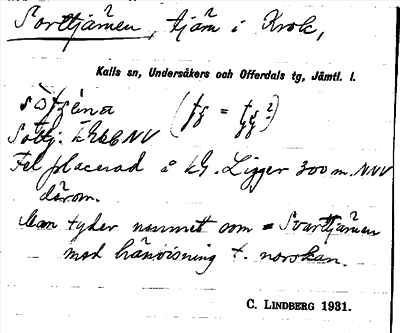 Sorttjärnen, tjärn i Krok,
Kalls sn, Undersåkers och Offerdals tg, Jämtl. l.
Fel placerad å kg. Ligger 300 m. NNV
därom.
Man tyder namnet som = Svarttjärnen
med hänvisning t. norskan.
C. LINDBERG 1931.